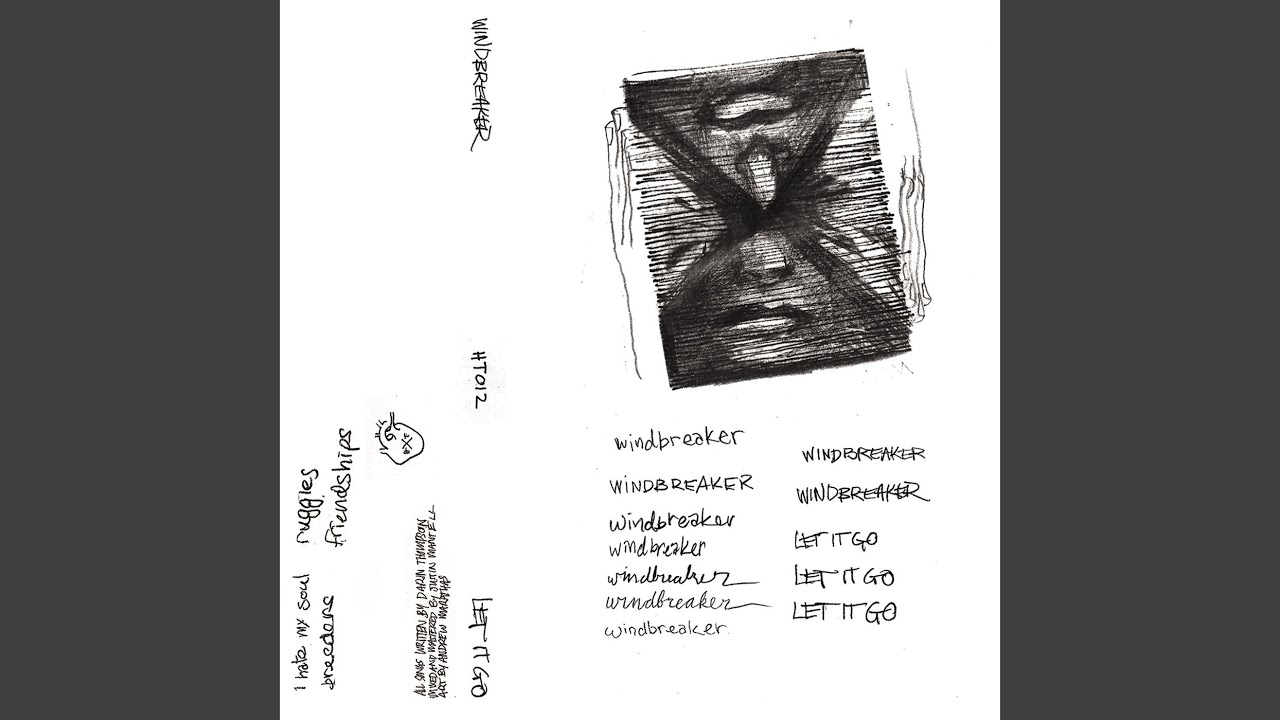 I hate my soul
breeders
ruggies
friendships
ALL SONGS WRITTEN BY DARIN THOMPSON
MIXED AND MASTERED BY JUSTIN MANTELL
ART BY ANDREW
WINDBREAKER
HT012
LET IT GO
windbreaker
WINDBREAKER
windbreaker
windbreaker
windbreaker
windbreaker
windbreaker
WINDBREAKER
WINDBREAKER
LET IT GO
LET IT GO
LET IT GO